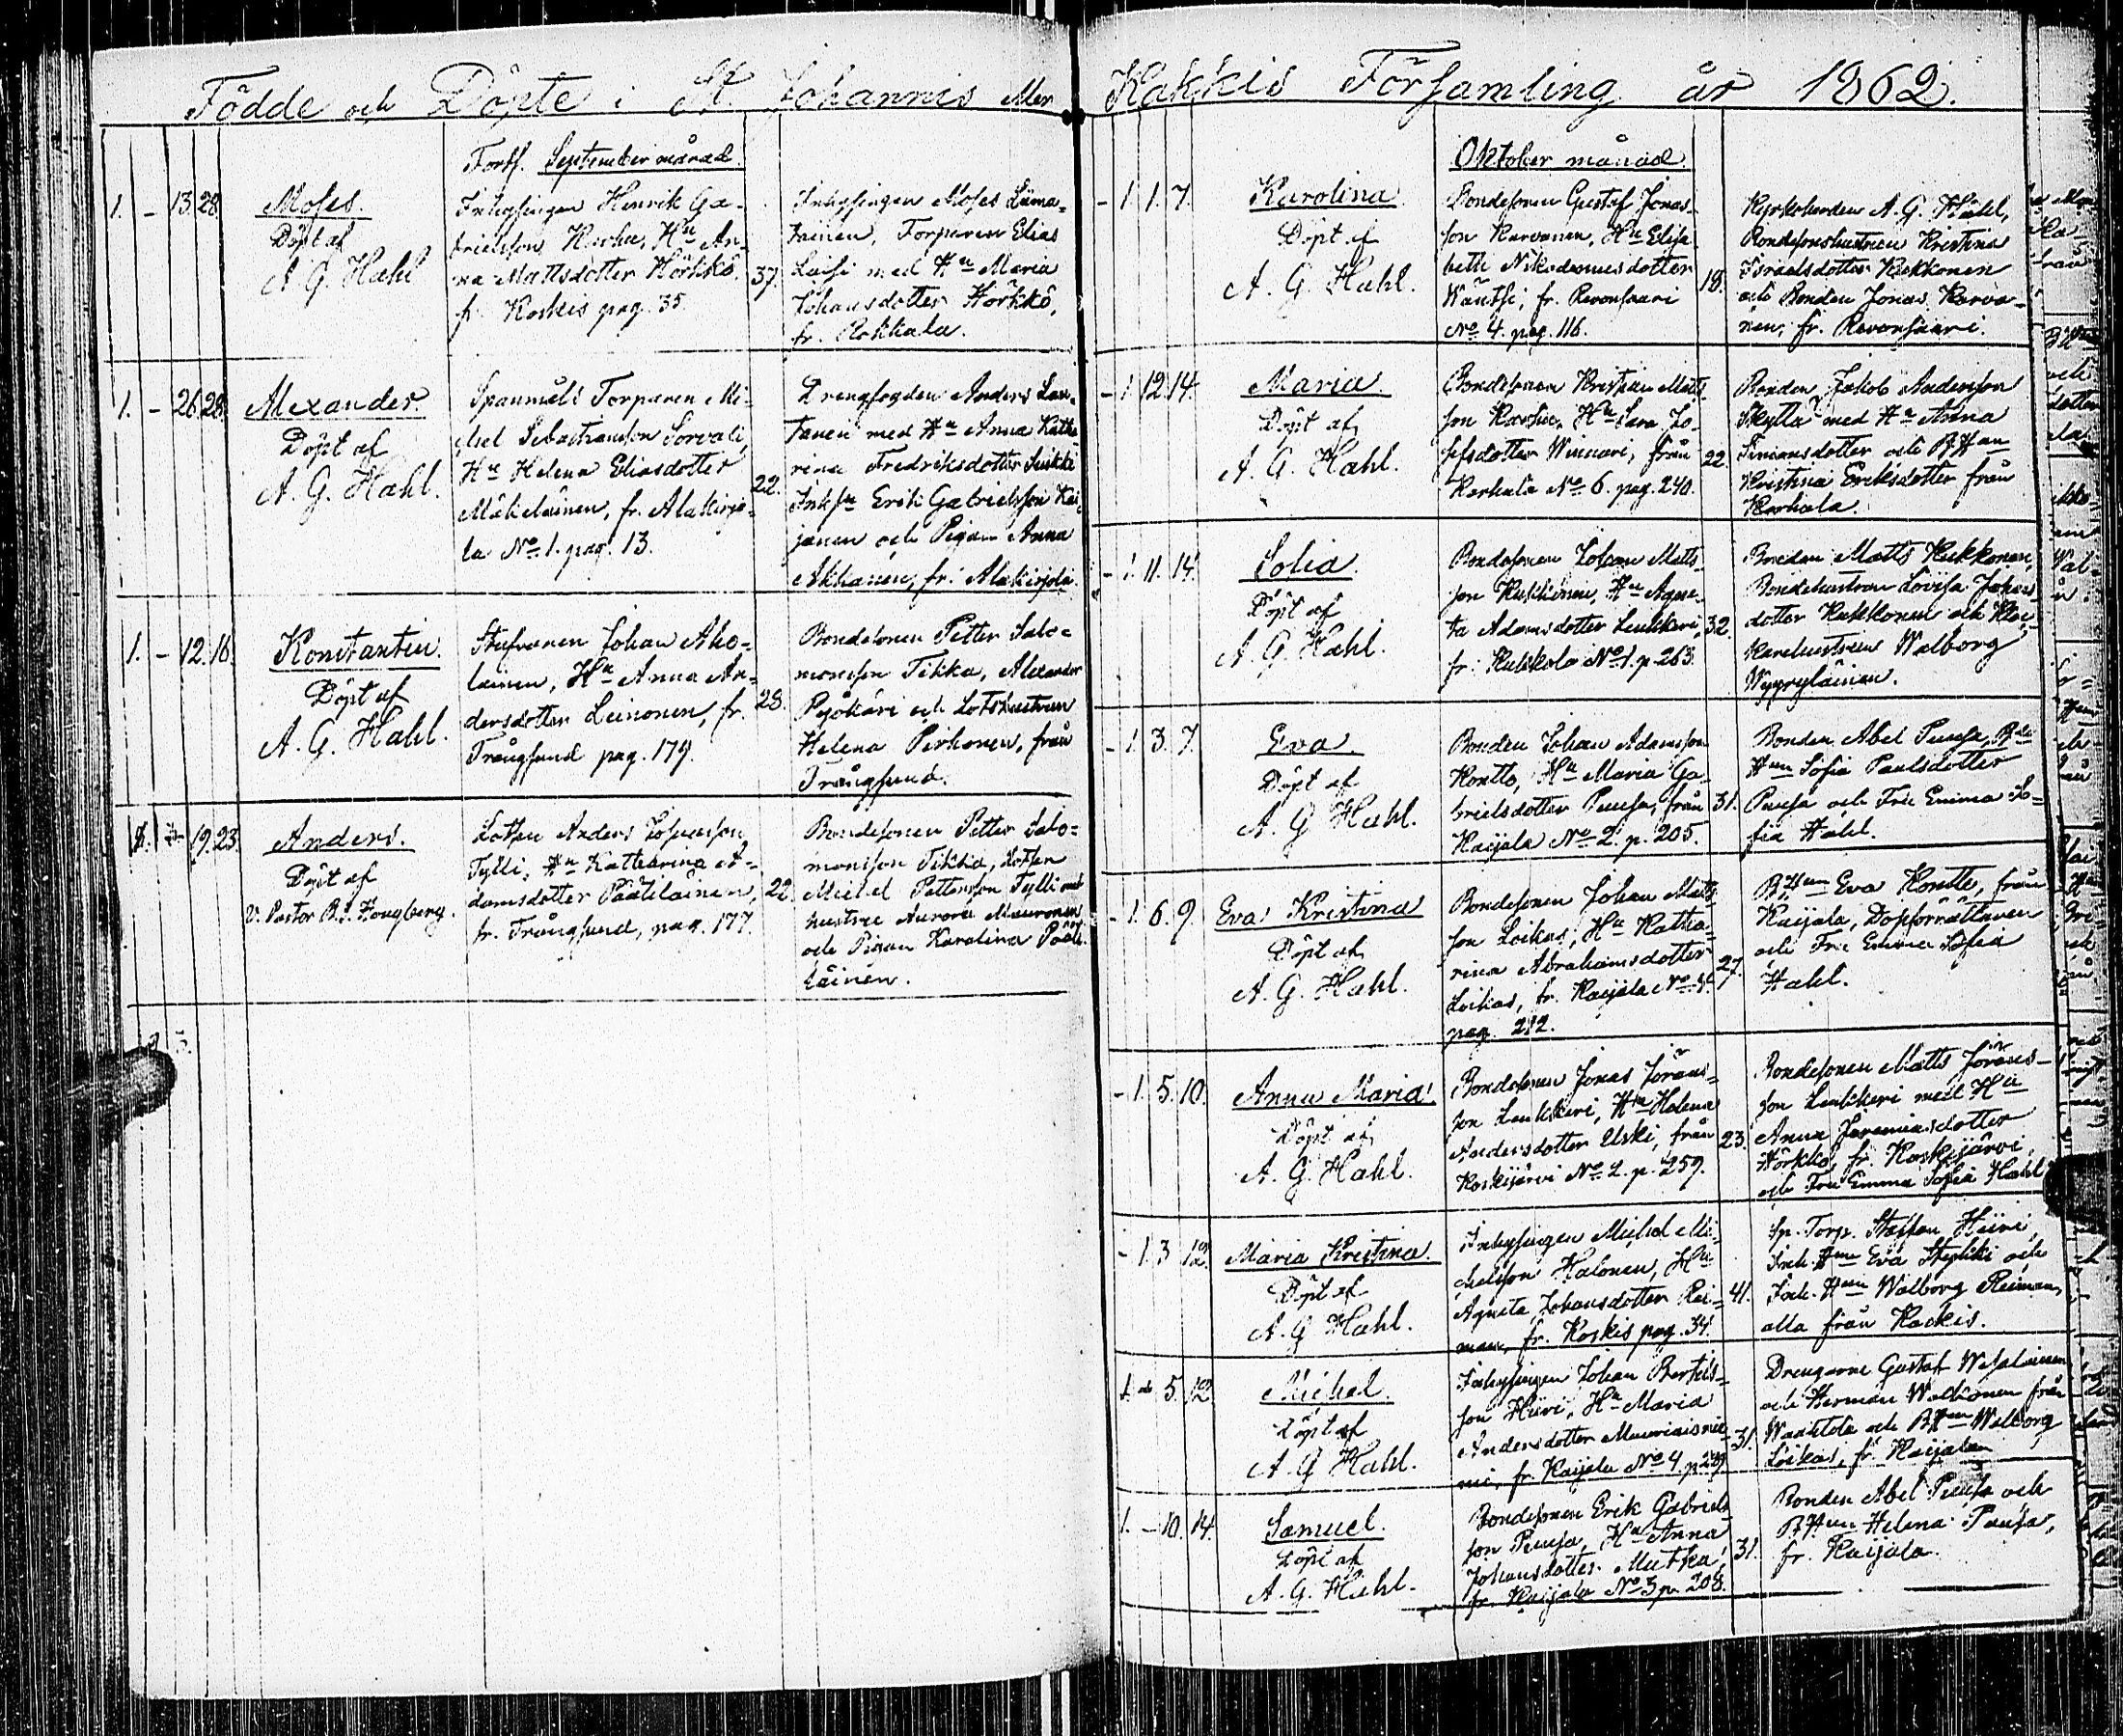 Födde och Döpte i St Johannis eller Kakkis Församling år 1862.
Fortf. September månad.
1. – 13. 28.
Moses.
Döpt af
A. G. Hahl
Inhysingen Henrik Ga-
brielsson Karhu, Hu An-
na Mattsdotter Hörkkö,
fr. Koskis pag. 35.
37.
Inhysingen Moses Lüma-
tainen, Torparen Elias
med Hu Maria
Johansdotter Hörkkö,
fr. Rokkala.
1. – 26. 28.
Alexander.
Döpt af
A. G. Hahl.
Spanmåls Torparen Mi-
chel Sebastiansson Sorvali,
Hu Helena Eliasdotter
fr. Alakirjo-
la No 1. pag. 13.
22.
Drengfogden Anders
med Hu Anna Katha-
rina Fredriksdotter
Erik Gabrielsson Kai-
janen och Pigan Anna
Akkanen, fr. Alakirjola.
1. – 12. 16.
Konstantin.
Döpt af
A. G. Hahl.
Johan Aho-
lainen, Hu Anna An-
dersdotter Leinonen, fr.
Trångsund pag. 179.
28.
Bondesonen Petter Salo-
monsson Tikka, Alexander
Pyökäri och Lotshustrun
Helena Pirhonen, från
Trångsund.
1. 19. 23.
Anders.
Döpt af
V. Pastor Kougberg.
Lotsen Anders Josefsson
Tylli, Hu Katharina A-
damsdotter Päätiläinen,
fr. Trångsund, pag. 177.
22.
Bondesonen Petter Salo-
monsson Tikka, Lotsen
Michel Pettersson Tylli med
hustru Aurora Mauronen
och Pigan Karolina Pääti-
läinen.
Oktober månad.
– 1. 1. 7.
Karolina.
Döpt af
A. G. Hahl.
Bondesonen Gustaf Jonas-
son Karvanen, Hu Elisa-
beth Nikodemusdotter
Wäntsi, fr. Revonsaari
No 4. pag. 116.
18.
Kyrkoherden A. G. Hahl,
Bondesonshustrun Kristina
Israelsdotter Kekkonen
och Bonden Jonas Karva-
nen, fr. Revonsaari.
– 1. 12. 14.
Maria.
Döpt af
A. G. Hahl.
Bondesonen Kristian Matts-
son Karhu, Hu Sara Jo-
sefsdotter Winnari, från
Karhula No 6. pag. 240.
22.
Bonden Jakob Andersson
Skyttä med Hu Anna
Simonsdotter och BHun
Kristina Eriksdotter från
Karhula.
– 1. 11. 14.
Sofia.
Döpt af
A. G. Hahl.
Bondesonen Johan Matts-
son Kukkonen, Hu Agne-
ta Adamsdotter Leukkeri,
fr. Kukkola No 1. p. 263.
32.
Bonden Matts Kukkonen,
Bondehustrun Lovisa Johans-
dotter Kukkonen och
Walborg
Wyyryläinen.
– 1. 3. 7.
Eva.
Döpt af
A. G. Hahl.
Bonden Johan Adamsson
Hontto, Hu Maria Ga-
brielsdotter Peusa, från
Kaijala No 2. p. 205.
31.
Bonden Abel Peusa,
Hun Sofia Paulsdotter
Peusa och Fru Emma So-
fia Hahl.
– 1. 6. 9.
Eva Kristina
Döpt af
A. G. Hahl.
Bondesonen Johan Matts-
son Loikas, Hu Katha-
rina Abrahamsdotter
Loikas, fr. Kaijala No 4.
pag. 212.
27.
BHun Eva Hontto, från
Kaijala, Dopförrättaren
och Fru Emma Sofia
Hahl.
– 1. 5. 10.
Anna Maria.
Döpt af
A. G. Hahl.
Bondesonen Jonas Jöräns-
son Leukkeri, Hu Helena
Andersdotter Uski, från
Koskijärvi No 2. p. 259.
23.
Bondesonen Matts Jöräns-
son Leukkeri med Hu
Anna Jeremiasdotter
Hörkkö, fr. Koskijärvi,
och Fru Emma Sofia Hahl
– 1. 3. 12.
Maria Kristina.
Döpt af
A. G. Hahl.
Inhysingen Michel Mi-
chelsson Halonen, Hu
Agneta Johansdotter Rei-
man, fr. Koskis pag. 34.
41.
Sp. Torp. Staffan Hiiri,
Inh. Hun Eva och
Inh. Hun Walborg Reiman,
alla från Kackis.
1. – 5. 12.
Michel.
Döpt af
A. G. Hahl.
Inhysingen Johan Bertils-
son Hiiri, Hu Maria
Andersdotter
fr. Kaijala No 4.
31.
Drengarne Gustaf Wesalainen
och Herman från
och BHun Walborg
Loikas, fr. Kaijala
1. – 10. 14.
Samuel.
Döpt af
A. G. Hahl.
Bondesonen Erik Gabriels-
son Peusa, Hu Anna
Johansdotter Mutka,
fr. Kaijala No 3 p. 208.
31.
Bonden Abel Peusa och
BHun Helena Peusa,
fr. Kaijala.